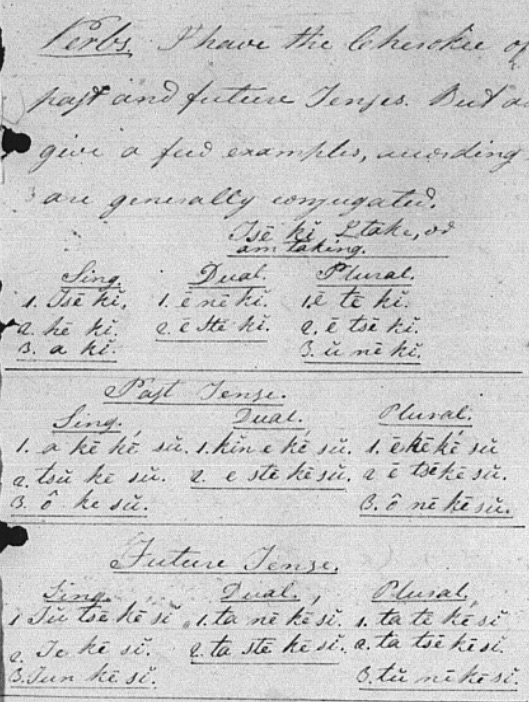 Verbs. I have the Cherokee of
past and future Tenses. But
give a few examples, according
are generally conjugated.
Tsē kĭ, I take, or
am taking.
Sing. Dual. Plural.
1. Tsē kĭ, 1. ē nē kĭ. 1. ē tē kĭ.
2. hē kĭ. 2. ē stē kĭ. 2. ē tsē kĭ.
3. a kĭ. 3. ŭ nē kĭ.
Past Tense.
Sing. Dual, Plural.
1. a kē kē sŭ. 1. kĭn e kē sŭ. 1. ē kē kē sŭ
2. tsŭ kē sŭ. 2. e stē kē sŭ. 2 ē tsē kē sŭ.
3. ô ke sŭ. 3. ô nē kē sŭ.
Future Tense.
Sing. Dual., Plural,
1 Tŭ tsē kē sĭ 1. ta nē kē sĭ. 1. ta tē kē sĭ
2. Te kē sĭ. 2. ta stē kē sĭ. 2. ta tsē kē sĭ.
3. Tun kē sĭ. 3. tŭ nē kē sĭ.